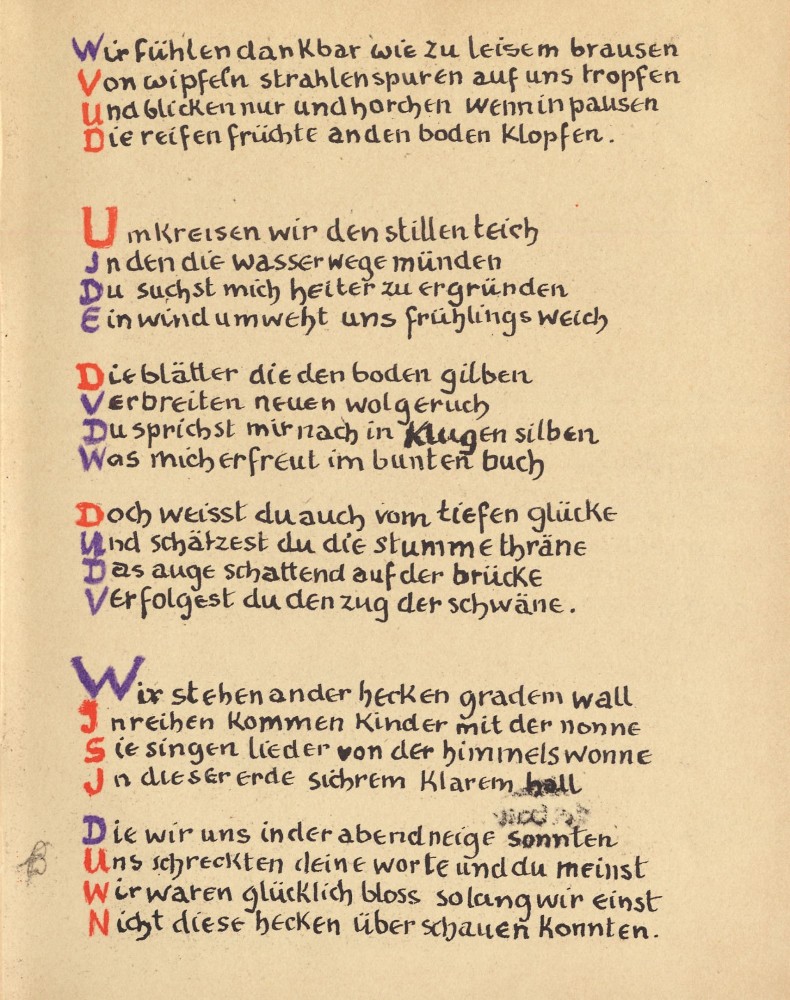 Wir fühlen dankbar wie zu leisem brausen
Von wipfeln strahlenspuren auf uns tropfen
Und blicken nur und horchen wenn in pausen
Die reifen früchte an den boden klopfen.
Umkreisen wir den stillen teich
In den die wasserwege münden
Du suchst mich heiter zu ergründen
Ein wind umweht uns frühlingsweich
Die blätter die den boden gilben
Verbreiten neuen wolgeruch
Du sprichst mir nach in klugen silben
Was mich erfreut im bunten buch
Doch weisst du auch vom tiefen glücke
Und schätzest du die stumme thräne
Das auge schattend auf der brücke
Verfolgest du den zug der schwäne.
Wir stehen an der hecken gradem wall
In reihen kommen kinder mit der nonne
Sie singen lieder von der himmelswonne
In dieser erde sichrem klarem hall
Die wir uns in der abendneige sonnten
Uns schreckten deine worte und du meinst
Wir waren glücklich bloss solang wir einst
Nicht diese hecken überschauen konnten.